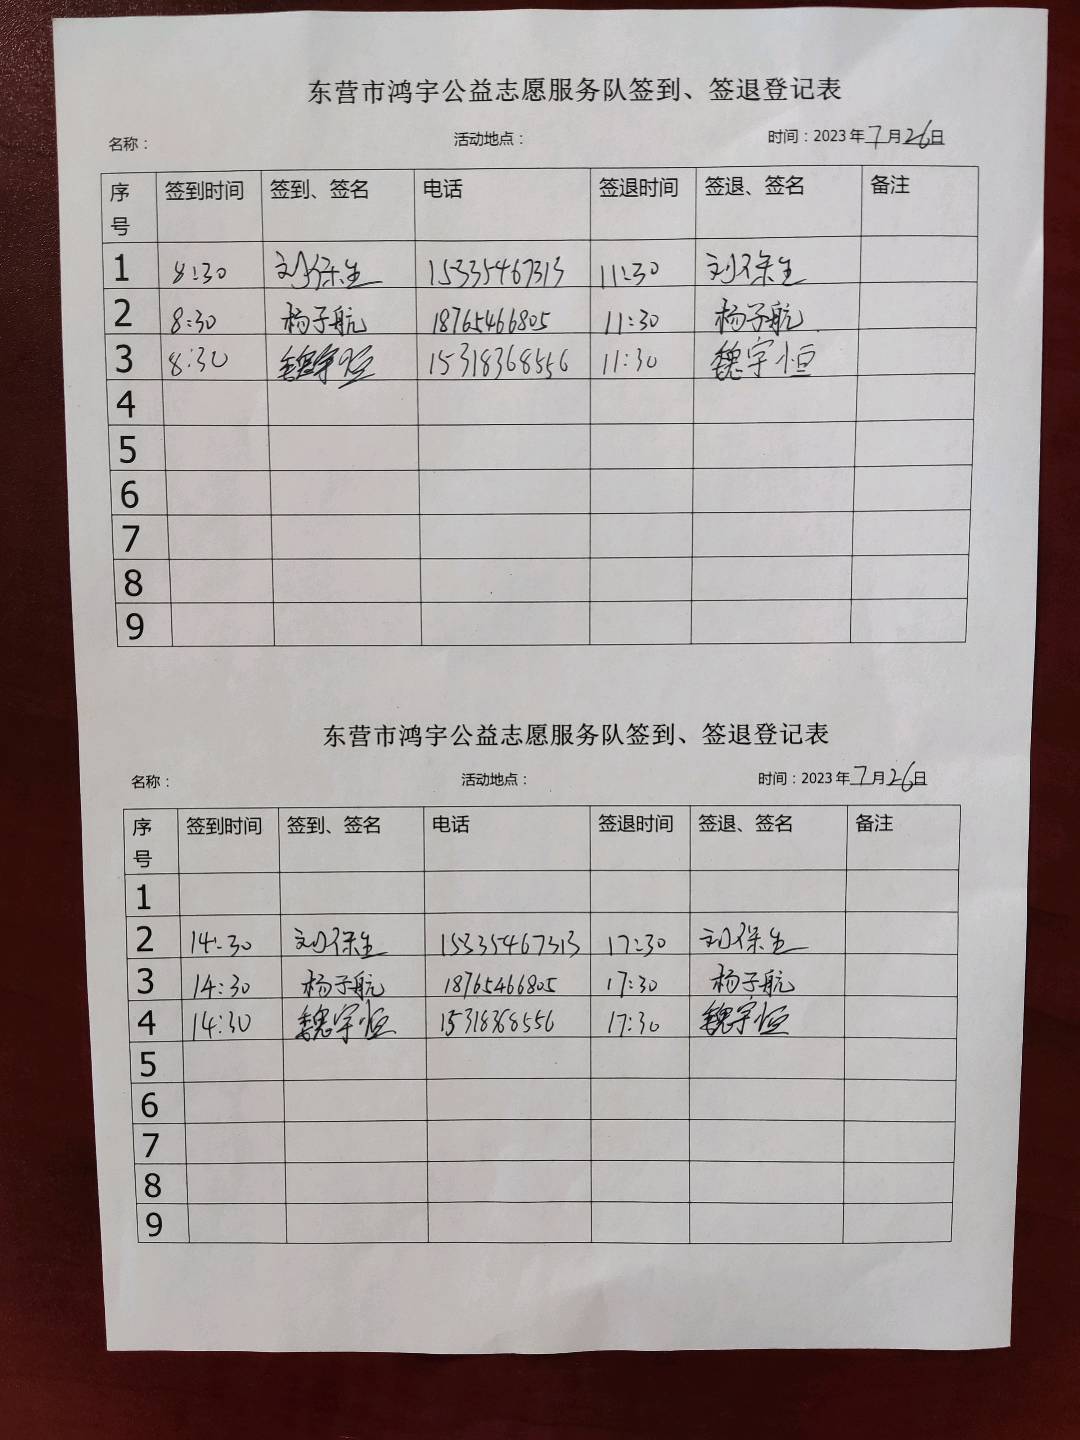 东营市鸿宇公益志愿服务队签到、签退登记表
名称： 活动地点： 时间：2023年7月26日
序号 签到时间 签到、签名 电话 签退时间 签退、签名 备注
1 8:30 刘保生 15335467313 11:30 刘保生
2 8:30 杨子航 18765466805 11:30 杨子航
3 8:30 魏宇恒 15318368556 11:30 魏宇恒
4
5
6
7
8
9
东营市鸿宇公益志愿服务队签到、签退登记表
名称： 活动地点： 时间：2023年7月26日
序号 签到时间 签到、签名 电话 签退时间 签退、签名 备注
1
2 14:30 刘保生 15335467313 17:30 刘保生
3 14:30 杨子航 18765466805 17:30 杨子航
4 14:30 魏宇恒 15318368556 17:30 魏宇恒
5
6
7
8
9